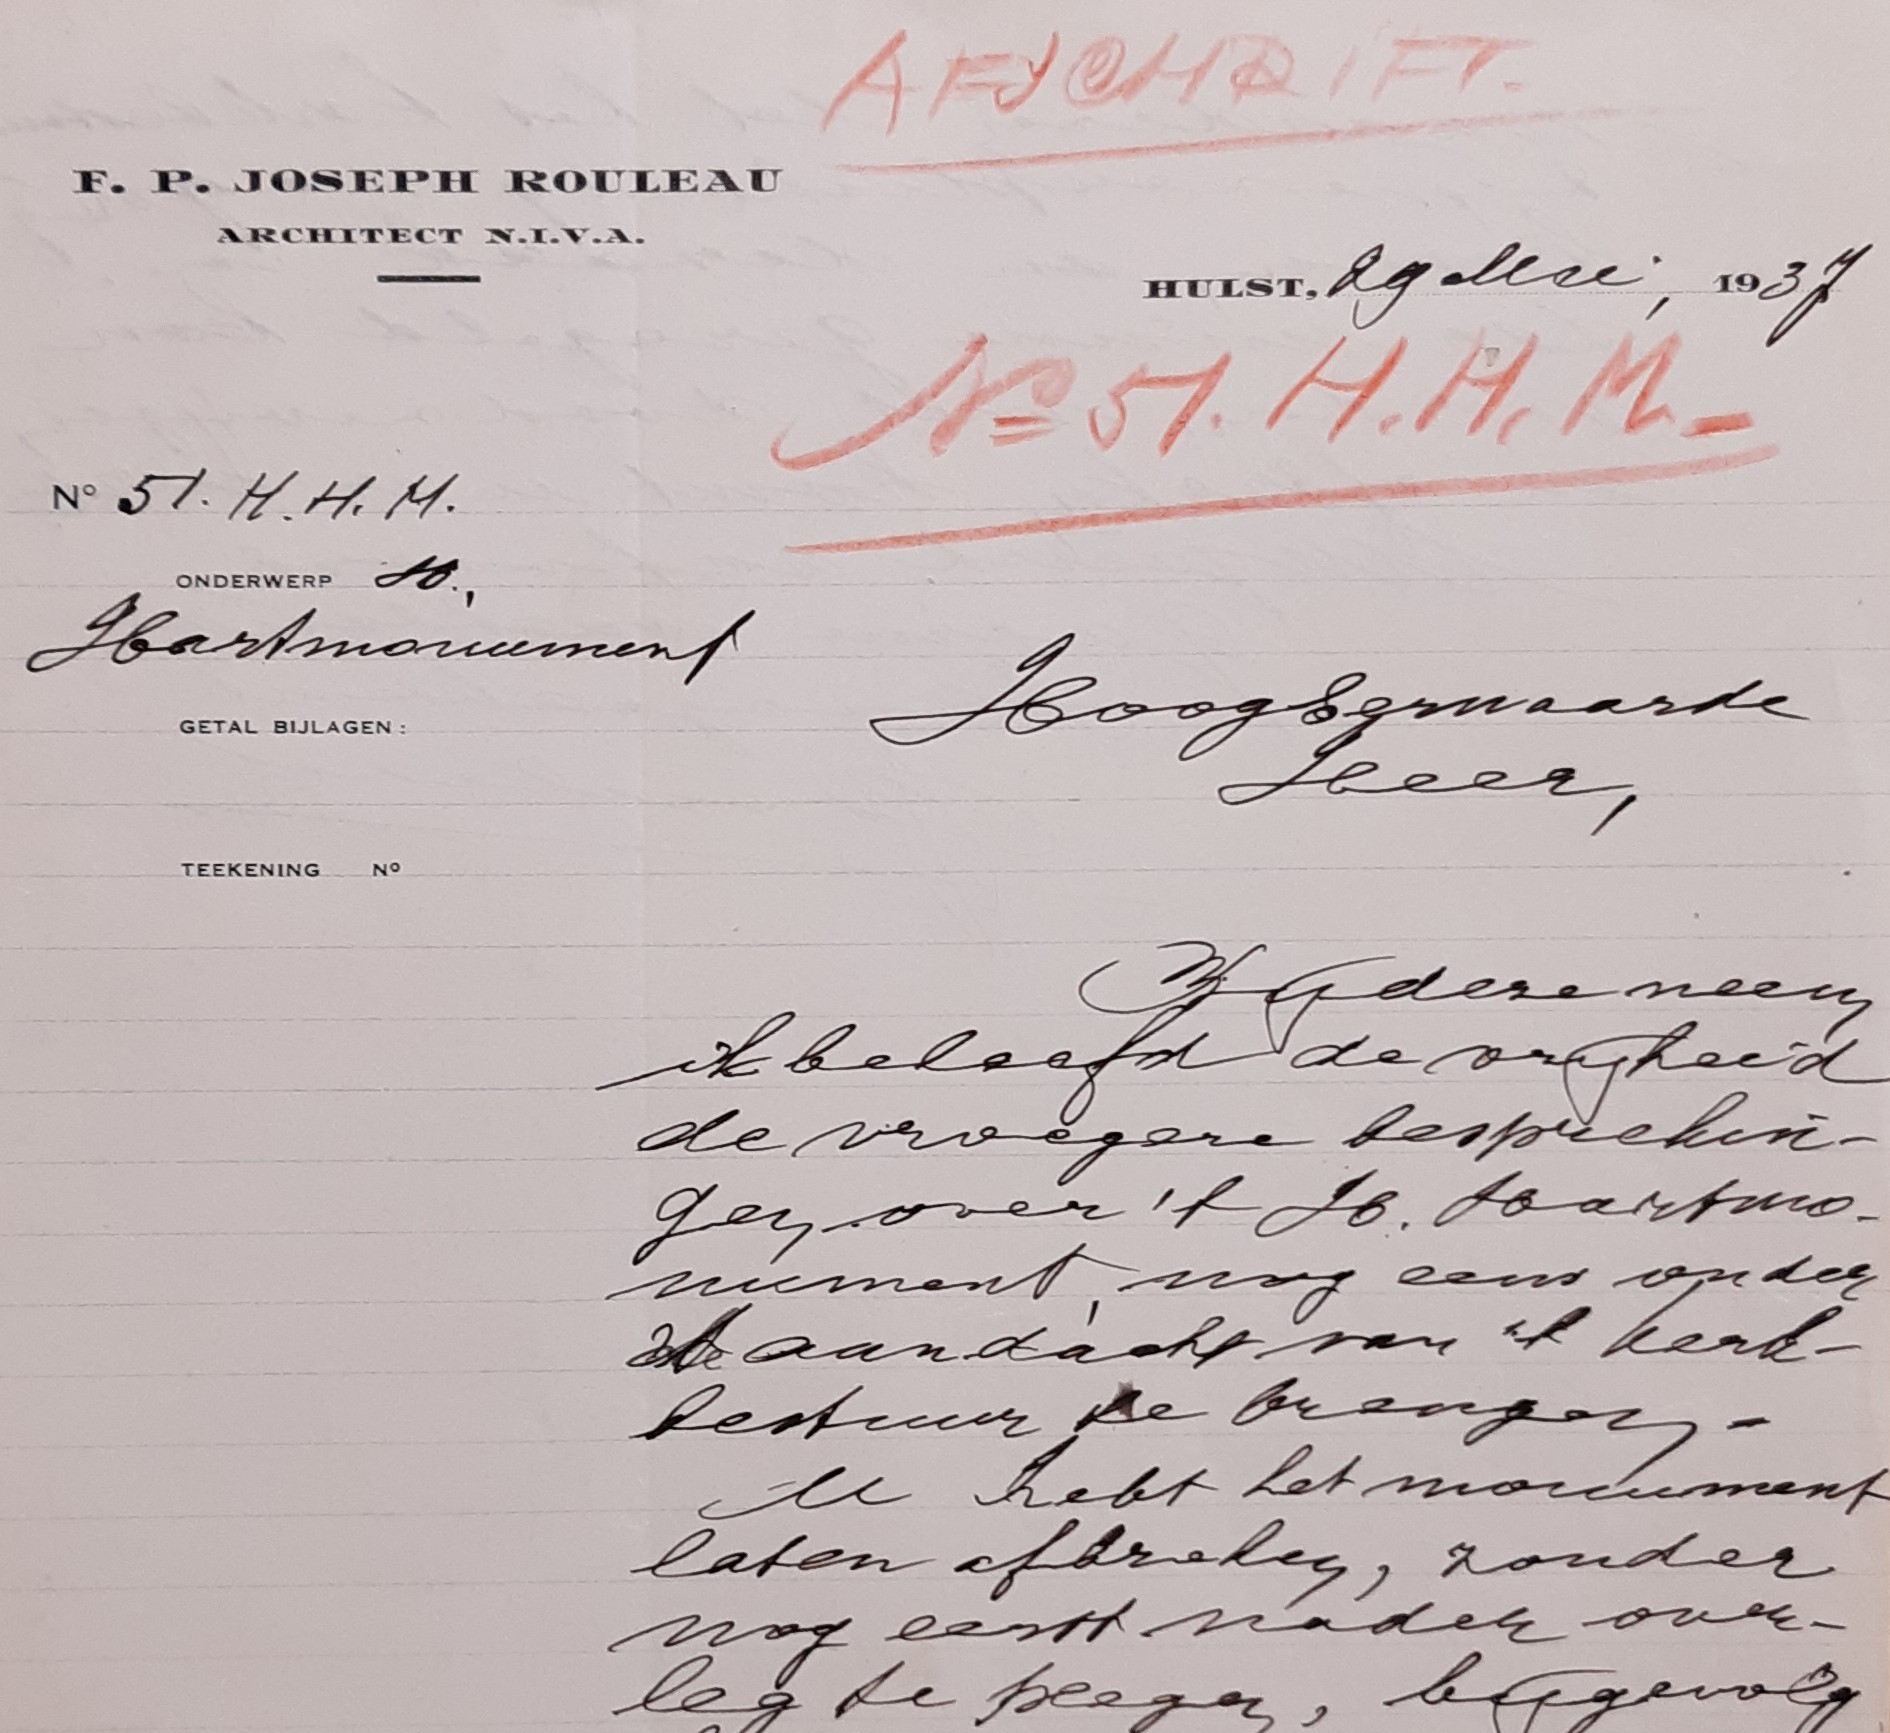 AFSCHRIFT.
F. P. JOSEPH ROULEAU
ARCHITECT N.I.V.A.
HULST, 29 Mei, 1937
No 51. H. H. M. -
No 51. H. H. M.
ONDERWERP H.,
Hartmonument
GETAL BIJLAGEN:
Hoog Eerwaarde
Heer,
TEEKENING No
Bij deze neem
ik beleefd de vrijheid
de vroegere besprekin-
gen over 't H. Hartmo-
nument, nog eens onder
de aandacht van 't kerk-
bestuur te brengen. -
U hebt het monument
laten afbreken, zonder
nog eerst nader over-
leg te plegen, bijgevolg